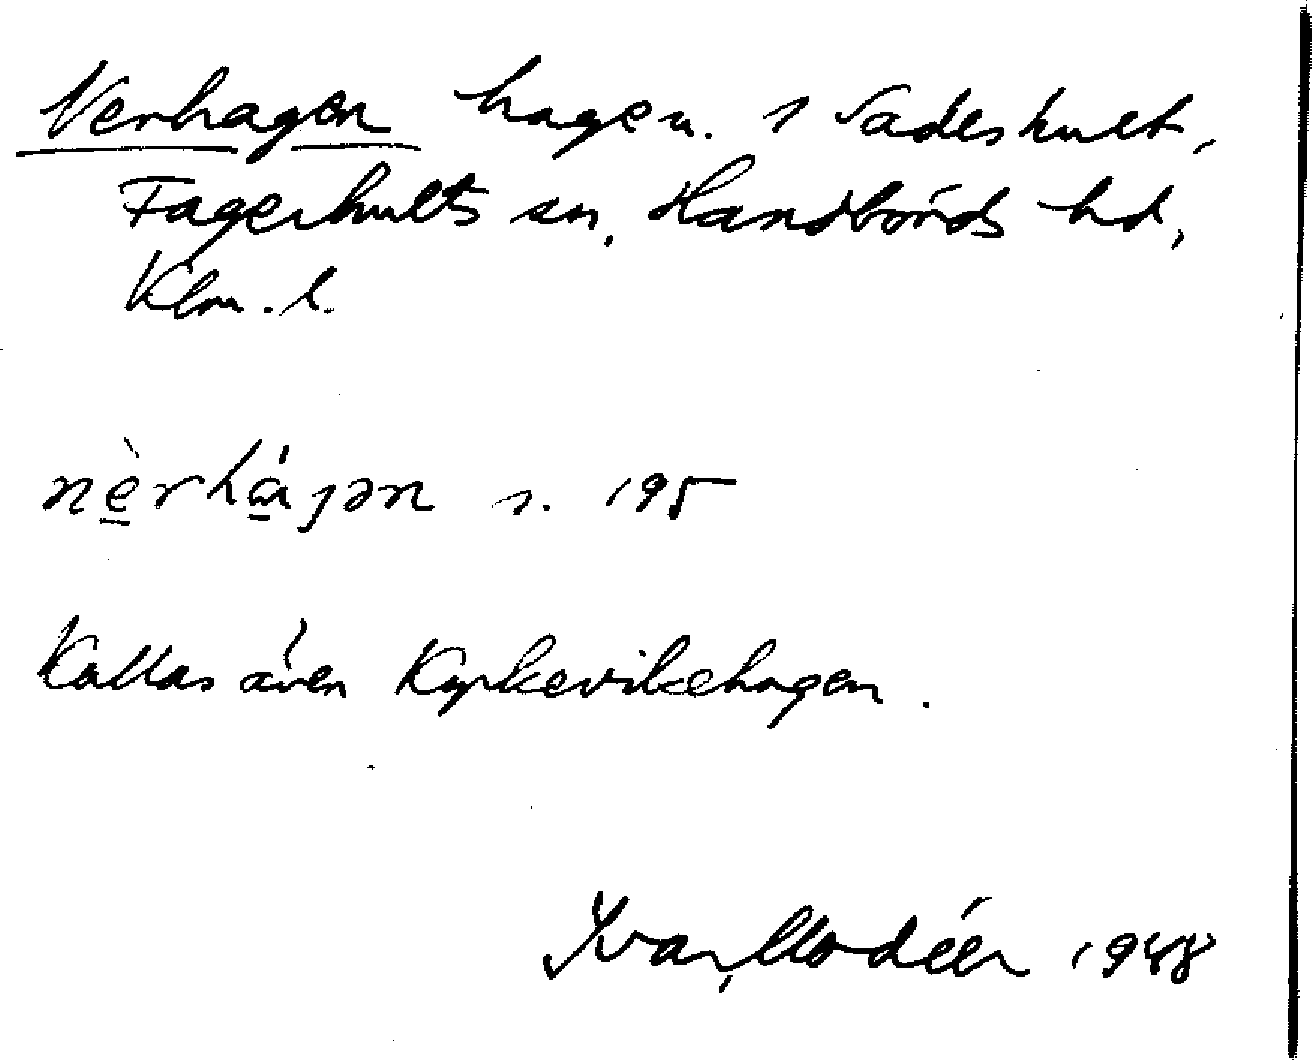 Nerhagen hage n. i Sadeshult,
Fagerhults sn, Handbörds hd,
Klm. l.
nè̠rhá̠ȷən s. 195
Kallas även Kyrkeviksehagen.
Ivar Modéer 1948